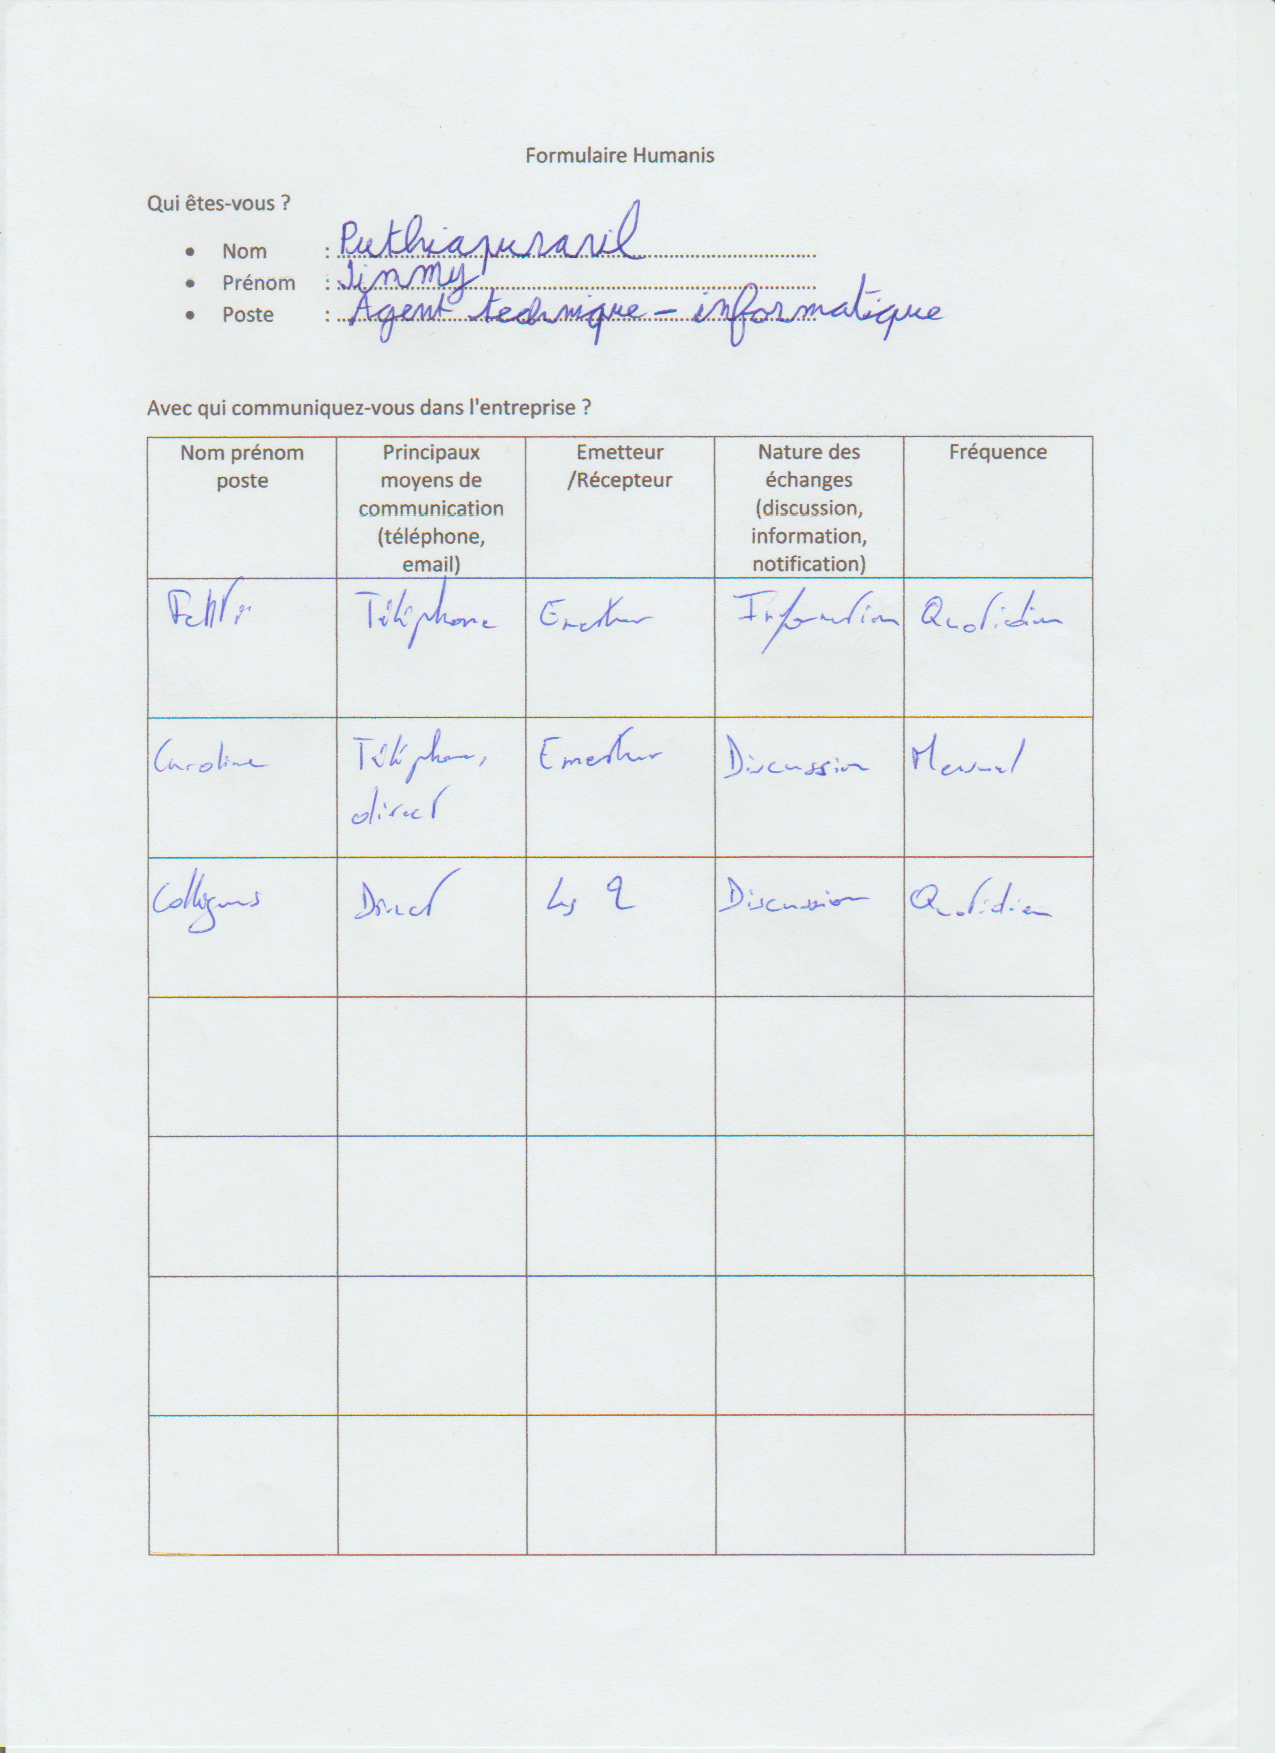 Formulaire Humanis
Qui êtes-vous ?
• Nom : Puthiapuraril
• Prénom : Jimmy
• Poste : Agent technique - informatique
Avec qui communiquez-vous dans l'entreprise ?
Nom prénom
poste
Principaux
moyens de
communication
(téléphone,
email)
Emetteur
/Récepteur
Nature des
échanges
(discussion,
information,
notification)
Fréquence
Téléphone Emetteur Information Quotidien
Caroline Téléphone, Emetteur Discussion Mensuel
direct
Collègues Direct Les 2 Discussion Quotidien